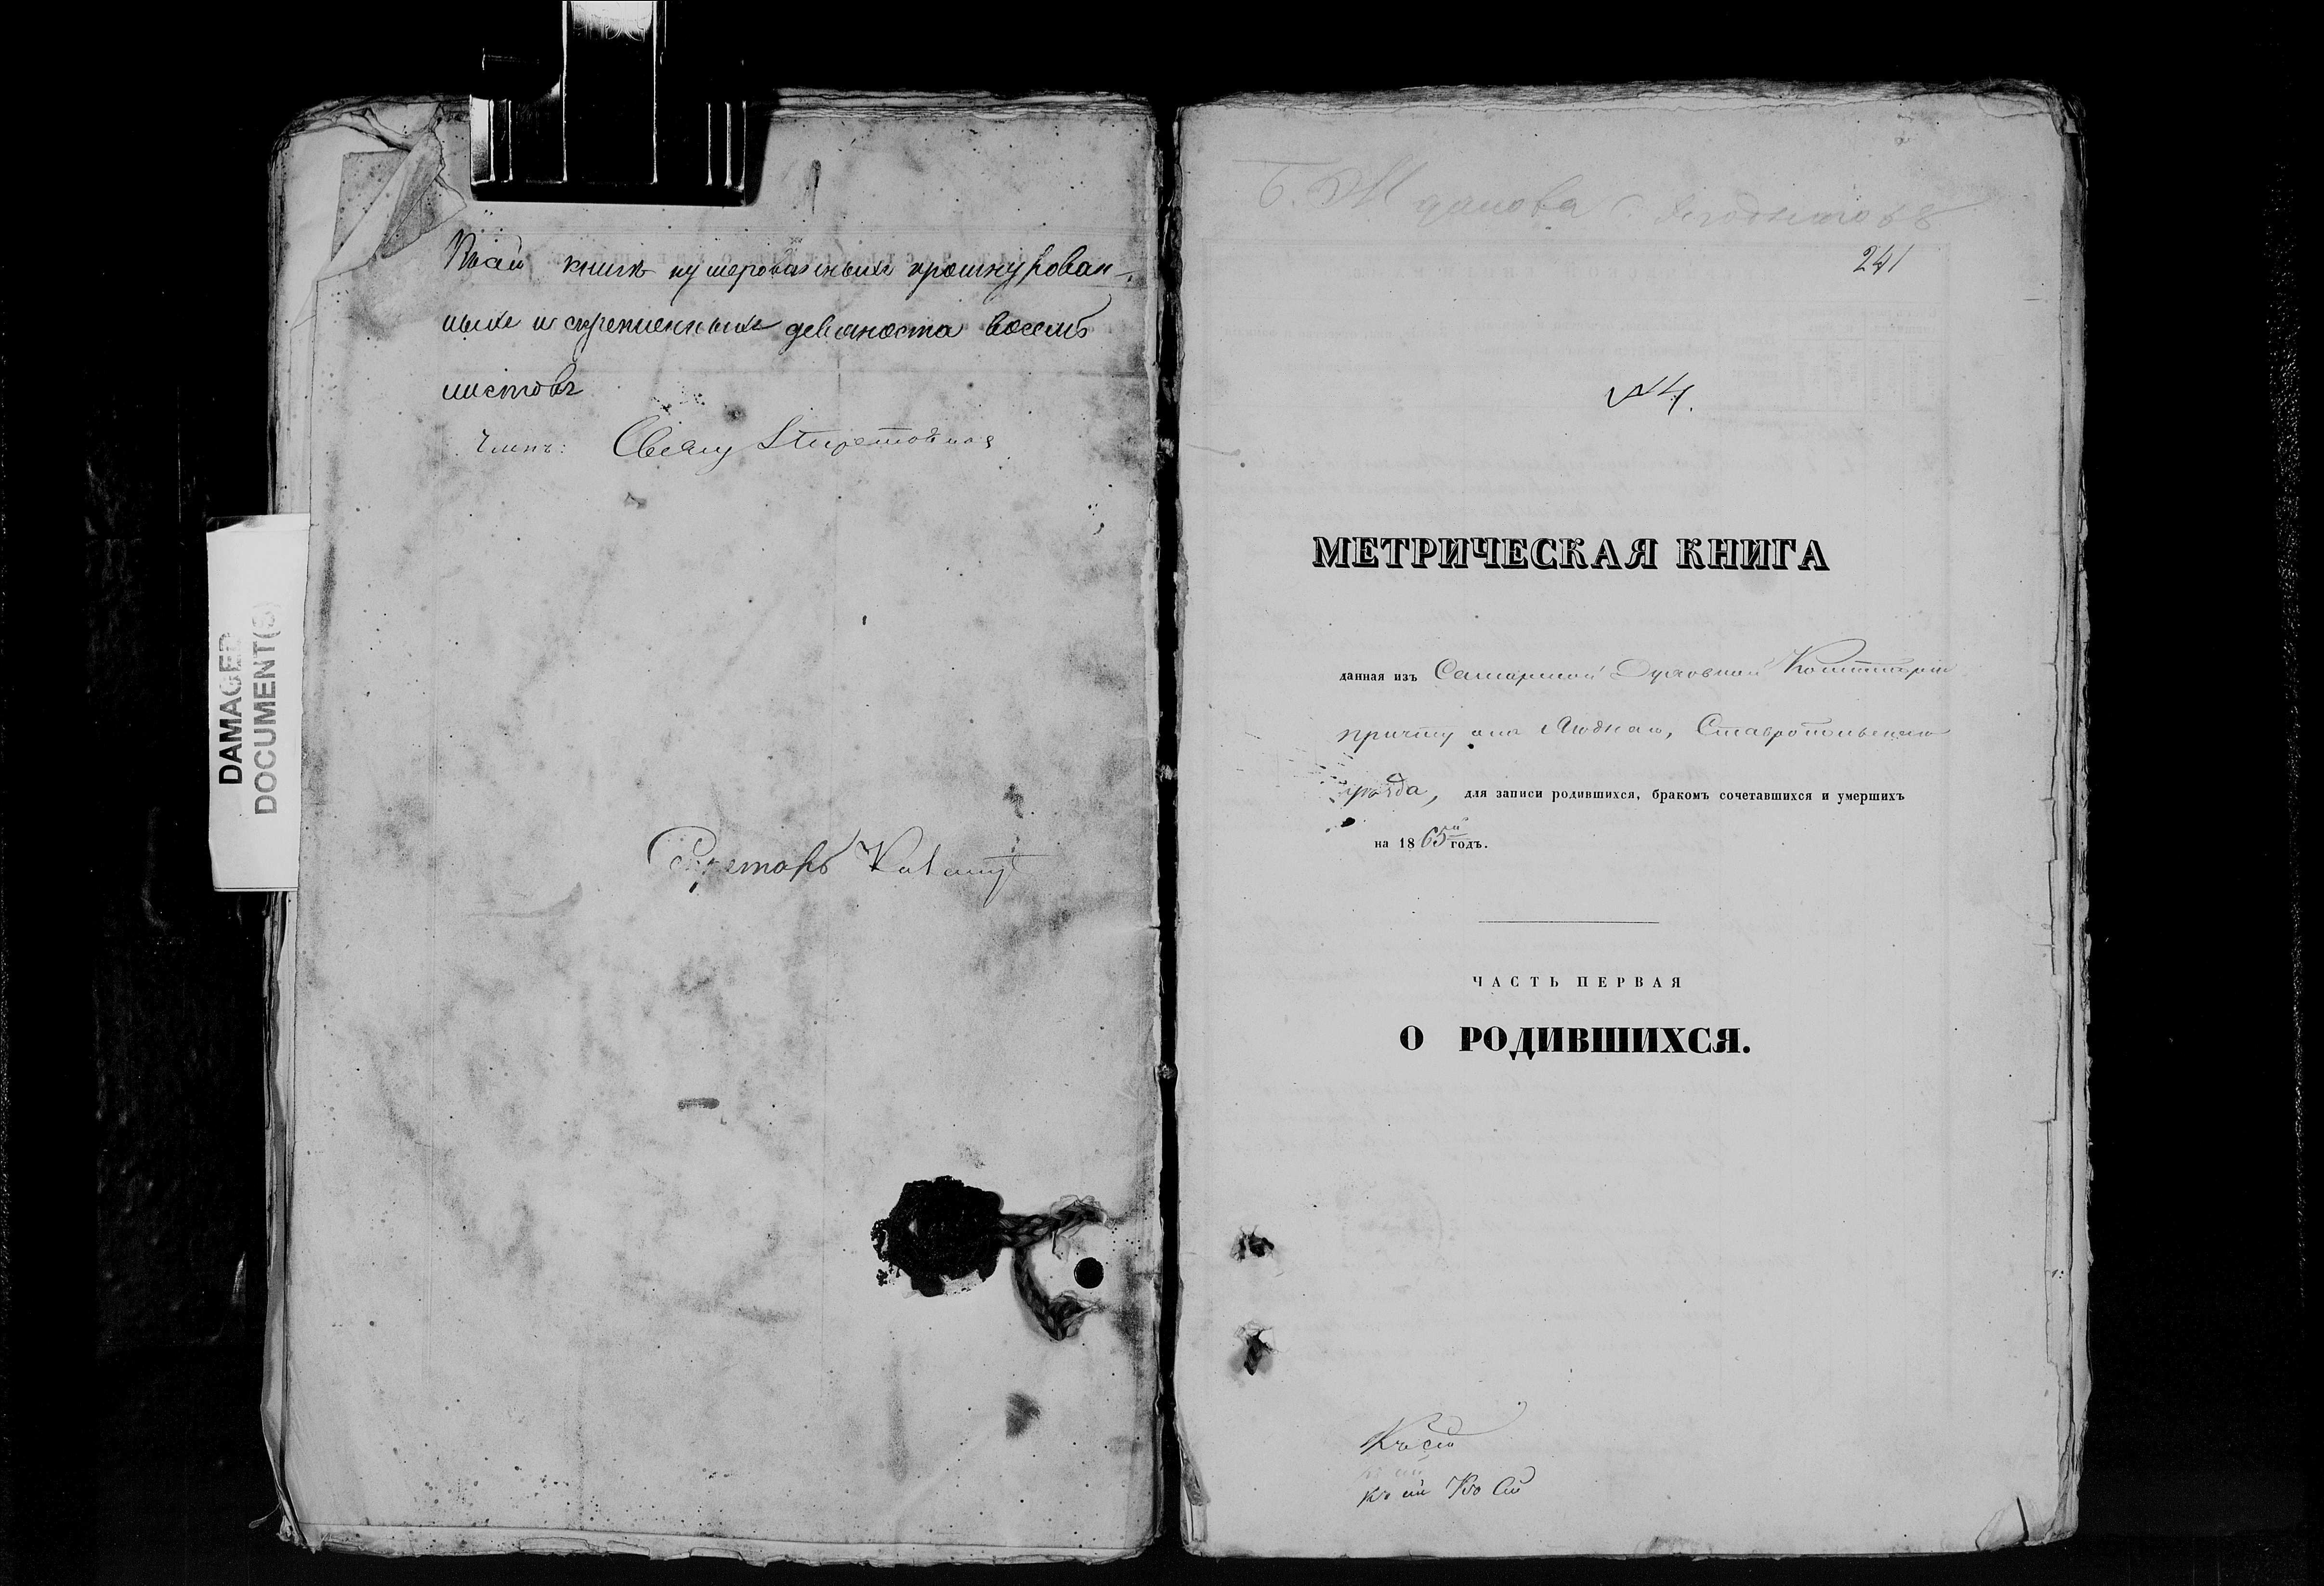 Въ сей книгѣ нумерованныхъ прошнурован-
ныхъ и скрепленныхъ девяносто восемь
листовъ
Членъ: Свящ
Секретарь
DAMAGED
DOCUMENT(S)
241
№ 4.
МЕТРИЧЕСКАЯ КНИГА
данная изъ Самарской Духовной Консисторіи
причту села Ставропольскаго
уѣзда, для записи родившихся, бракомъ сочетавшихся и умершихъ
на 1865й годъ.
ЧАСТЬ ПЕРВАЯ
О РОДИВШИХСЯ.
Къ сей
къ сей Къ сей